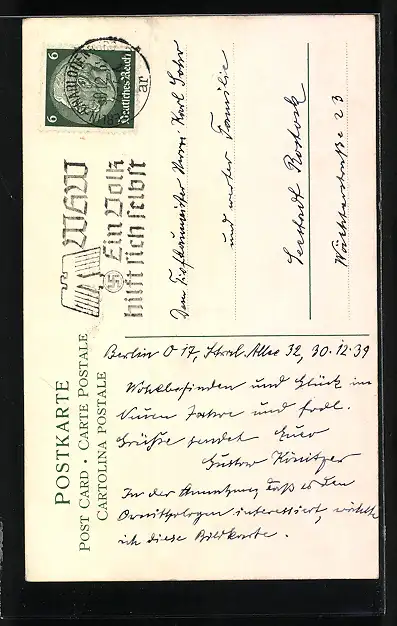 POSTKARTE
POST CARD · CARTE POSTALE
CARTOLINA POSTALE
6 6
Deutsches Reich
BERLIN-CHARLOTTEN
30.12.
ar
WHW
Ein Volk
hilft sich selbst
Dem Tiefbaumeister Herrn Karl
und werter Familie
Seestadt Rostock
Wächterstraße 23
Berlin O 17, Stral. Allee 32, 30.12.39
Wohlbefinden und Glück im
Neuen Jahre und frdl.
Grüße sendet Euer
Gustav Könitzer
In der Annahme, daß es den
Ornithologen interessiert, wählte
ich diese Bildkarte.